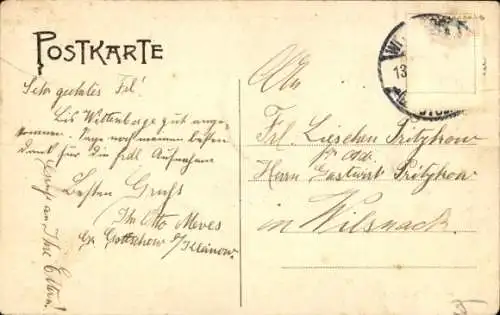 POSTKARTE
Sehr geehrtes Frl!
Bis Wittenberge gut ange-
kommen. Sage noch meinen besten
Dank für die frdl Aufnahme
Besten Gruß
Ihr Otto Meves
Gruß an Ihre Eltern!
13
An
Frl. Lieschen Pritzkow
pr Adr.
Herrn Gastwirt Pritzkow
in Wilsnack.